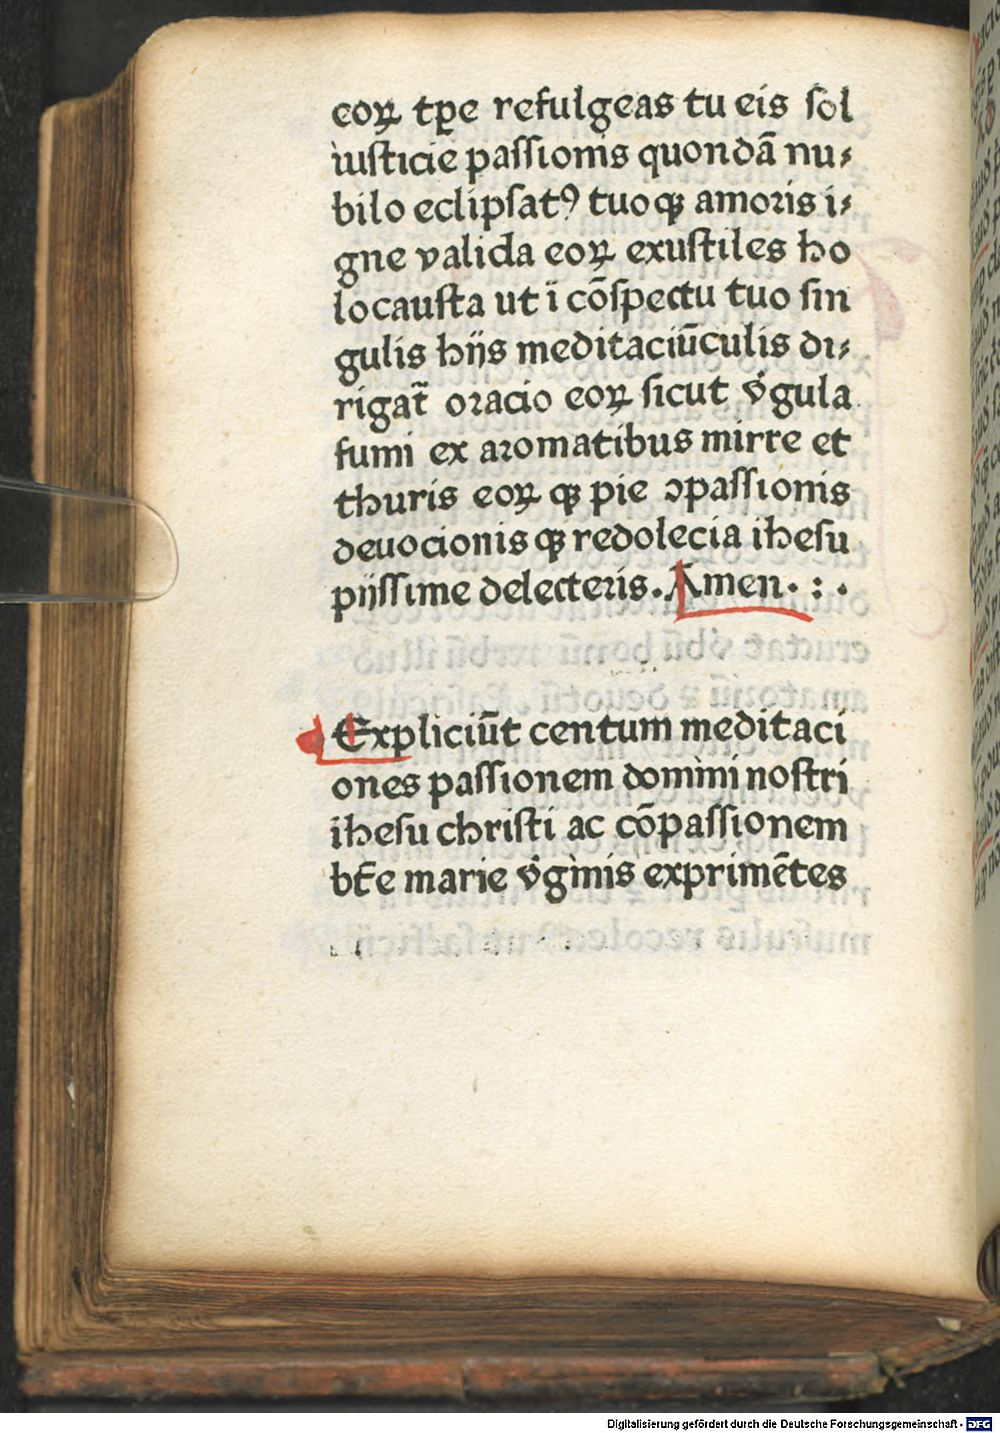 eoꝝ tp̄e refulgeas tu eis ſol
iuſticie paſſionis quondā nu⸗
bilo eclipſatꝰ tuoqꝫ amoꝛis i⸗
gne valida eoꝝ exuſtiles ho
locauſta ut ī cōſpectu tuo ſin
gulis hijs meditaciūculis di⸗
rigat̄ oꝛacio eoꝝ ſicut v̇gula
fumi ex aꝛomatibus mirre et
thuris eoꝝ qꝫ pie ꝯpaſſionis
deuocionis qꝫ redolecia iheſu
pijſſime delecteris. Amen. : .
Expliciūt centum meditaci
ones paſſionem domini noſtri
iheſu chriſti ac cōpaſſionem
bt̄e marie v̇ginis exprimētes
Digitalisierung gefördert durch die Deutsche Forschungsgemeinschaft - DFG